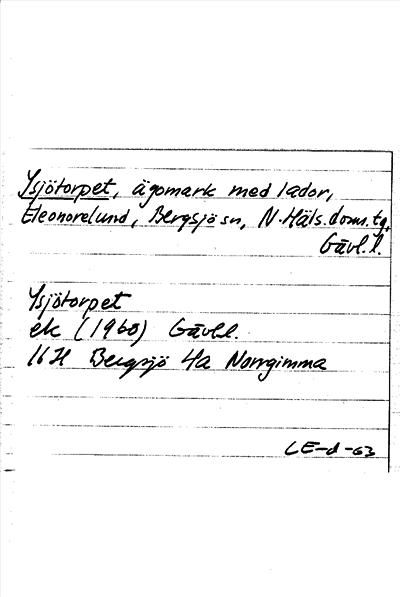 Ysjötorpet, ägomark med lador,
Eleonorelund, Bergsjö sn, N. Häls. doms. tg,
Gävl. l.
Ysjötorpet
ek (1960) Gävl.l.
16H Bergsjö 4a Norrgimma
LE-d-63